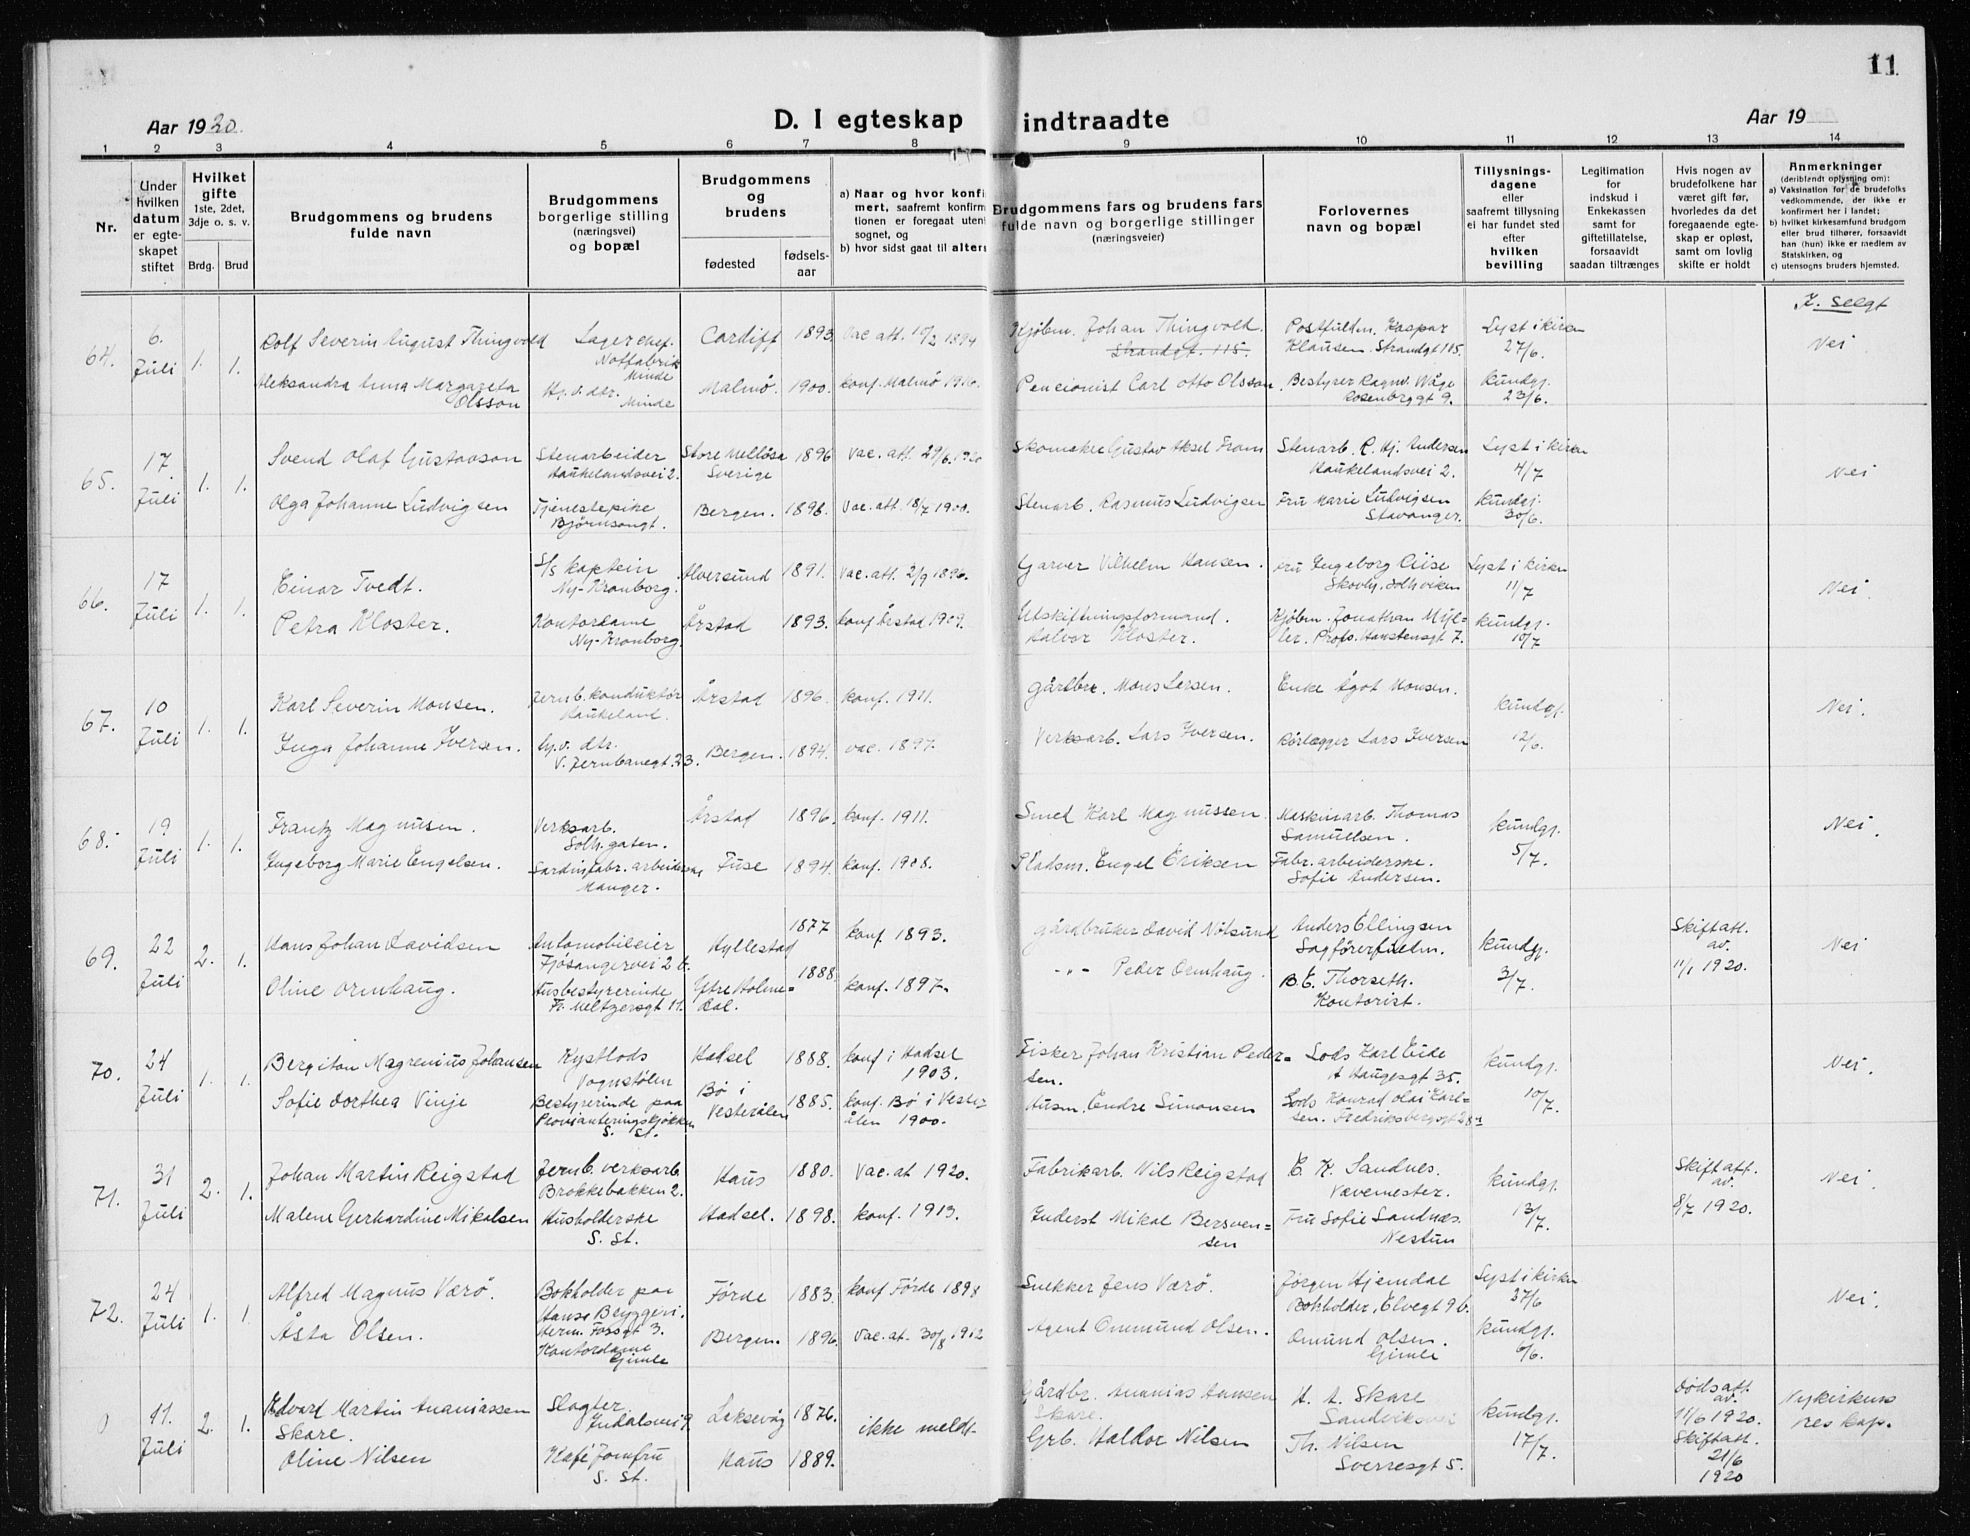 11
D. I egteskap indtraadte
Aar 1920.
Aar 19
1 2 3 4 5 6 7 8 9 10 11 12 13 14
Nr.
Under hvilken datum er egteskapet stiftet
Hvilket gifte
1ste, 2det, 3dje o. s. v.
Brdg. Brud
Brudgommens og brudens
fulde navn
Brudgommens
borgerlige stilling
(næringsvei)
og bopæl
Brudgommens
og
brudens
fødested
fødsels-
aar
a) Naar og hvor konfi
mert, saafremt konfirm
tionen er foregaat uten
sognet, og
b) hvor sidst gaat til alters
Brudgommens fars og brudens fars
fulde navn og borgerlige stillinger
(næringsveier)
Forlovernes
navn og bopæl
Tillysnings-
dagene
eller
saafremt tillysning
ei har fundet sted
efter
hvilken
bevilling
Legitimation
for
indskud i
Enkekassen
samt for
giftetillatelse,
forsaavidt
saadan tiltrænges
Hvis nogen av
brudefolkene har
været gift før,
hvorledes da det
foregaaende egte-
skap er opløst,
samt om lovlig
skifte er holdt
Anmerkninger
(deriblandt oplysning om):
a) Vaksination for de brudefolks
vedkommende, der ikke er
konfirmert her i landet;
b) hvilket kirkesamfund brudgom
eller brud tilhører, forsaavidt
han (hun) ikke er medlem av
Statskirken, og
c) utensogns bruders hjemsted.
selgt
64. 6. Juli 1. 1.
Rolf Severin August Thingvold Lagerchef. Notfabrik Minde Cardiff 1893. Vac att. 10/2 1894 Kjøbm. Johan Thingvold. Strandgt. 115. Postfuldm. Kaspar Klausen. Strandgt 115. Lyst i kirken 27/6. Nei
Aleksandra Anna Margareta Olsson Hj. v. dtr. Minde Malmø. 1900. konf. Malmö 1916. Pencionist Carl Otto Olsson. Bestyrer Ragnv. Wåge Rosenbrggt 9. kundgj. 23/6.
65. 17. Juli 1. 1.
Svend Olaf Gustavson Stenarbeider Haukelandsvei 2. Store Mellösa Sverige 1896 Vac. att. 29/6. 1920 Skomaker Gustav Aksel From Stenarb. R. Hj. Andersen Haukelandsvei 2. Lyst i kirken 4/7 Nei
Olga Johanne Ludvigsen Tjenestepike Bjørnsongt. Bergen. 1898. Vac. att. 18/7 1900. Stenarb. Rasmus Ludvigsen Fru Marie Ludvigsen Stavanger. kundgj. 30/6.
66. 17 Juli 1. 1.
Einar Tvedt. S/S kaptein Ny-Kronborg. Alversund 1891. Vac. att. 2/9 1896. Garver Vilhelm Hansen. Fru Ingeborg Riise Skovly. Solhviken Lyst i kirken 11/7 Nei.
Petra Kloster. Kontordame Ny-Kronborg. Årstad 1893. konf Årstad 1909. Utskiftningsformand. Halvor Kloster. Kjøbm. Jonathan Myhler. Profs. Hanstensgt 7. kundgj. 10/7
67. 10 Juli 1. 1.
Karl Severin Monsen. Jernb. konduktør Haukeland. Årstad 1896. konf. 1911. Gårdbr. Mons Larsen. Enke Ågot Monsen. kundgj. 12/6. Nei.
Inga Johanne Iversen. hj. v. dtr. V. Jernbanegt. 23. Bergen. 1894. vac. 1897. Verksarb. Lars Iversen. Rørlægger Lars Iversen
68. 19 Juli 1. 1.
Frantz Magnusen. Verksarb. Solh. gaten. Årstad 1896. konf. 1911. Smed Karl Magnussen. Maskinarb. Thomas Samuelsen. kundgj. 5/7. Nei.
Ingeborg Marie Engelsen. Sardinfabr. arbeiderske Manger. Fuse 1894. konf. 1908. Pladsm. Engel Eriksen Fabr. arbeiderske. Sofie Andersen.
69. 22 Juli 2. 1.
Hans Johan Davidsen Automobileier Fjøsangervei 2 b. Hyllestad 1877 konf. 1893. Gårdbruker David Nölsund Anders Ellingsen Sagførerfuldm. kundgj. 3/7. Skiftatt. av. 11/1 1920. Nei
Oline Ormhaug. Husbestyrerinde Fr. Meltzersgt 11. Ytre Holme=dal. 1888 konf. 1897. -"- Peder Ormhaug. B. E. Thorseth. Kontorist.
70. 24 Juli 1. 1.
Bergiton Magrenius Johansen Kystlods Vognstølen Hadsel 1888. konf i Hadsel 1903. Fisker Johan Kristian Peder=sen. Lods Karl Eide A Haugesgt 35. kundgj. 10/7. Nei.
Sofie Dorthea Vinje Bestyrerinde paa Provianteringskjøkken S. St. Bø i Vesterålen 1885. konf. Bø i Vesterålen 1900. Husm. Endre Simonsen Lods Konrad Olai Karl=sen. Fredriksbergsgt 28
71. 31 Juli 2. 1.
Johan Martin Reigstad Jernb. verksarb. Brokkebakken 2. Haus 1880. Vac. at 1920. Fabrikarb. Nils Reigstad E. K. Sandnes. Vævemester. kundgj. 13/7. Skift att. av. 8/7 1920. Nei.
Malene Gerhardine Mikalsen Husholderske S. St. Hadsel. 1898. konf. 1913. Inderst Mikal Bersven=sen Fru Sofie Sandnæs. Nestun
72. 24 Juli 1. 1.
Alfred Magnus Værö. Bokholder paa Hansa Bryggeri. Herm. Fossgt 3. Førde 1883. konf Førde 1898 Snekker Jens Værö. Jørgen Hjemdal Bokholder, Elvegt 9 b. Lyst i kirken 27/6 Nei.
Åsta Olsen. Kontordame Gimle Bergen. 1896. Vac. at. 30/8 1912 Agent Ommund Olsen. Omund Olsen. Gimle kundgj. 6/6.
0 11. Juli 2. 1.
Edvard Martin Ananiassen Skare. Slagter Indalsvei 9. Laksevåg 1876. ikke meldt- Gårdbr. Ananias Hansen Skare. H. A. Skare Sandviksvei kundgj. 17/7. Dødsatt. av. 11/6 1920. Skiftatt. 21/6 1920 Nykirkens res kap.
Oline Nilsen Kafé Jomfru S. St. Haus 1889. Grb. Haldor Nilsen Th. Nilsen Sverresgt 5.